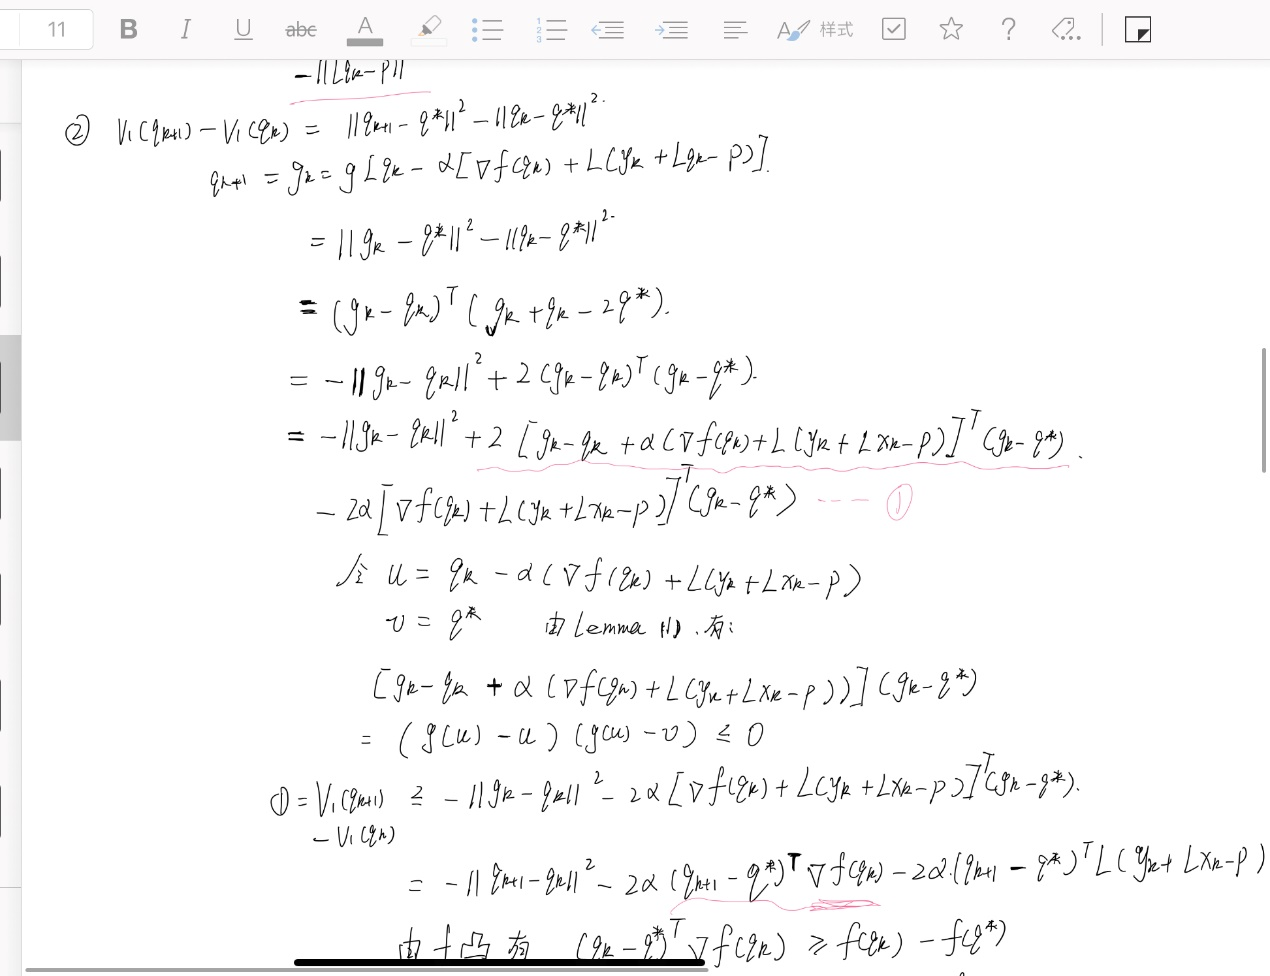 11 B I U abc A 样式
-||Lq_k-p||
② V₁(q_{k+1}) - V₁(q_k) = ||q_{k+1} - q*||² - ||q_k - q*||².
q_{k+1} = g_k = g[q_k - α[∇f(q_k) + L(y_k + Lq_k - p)].
= ||g_k - q*||² - ||q_k - q*||².
= (g_k - q_k)ᵀ(g_k + q_k - 2q*).
= -||g_k - q_k||² + 2(g_k - q_k)ᵀ(g_k - q*).
= -||g_k - q_k||² + 2[g_k - q_k + α(∇f(q_k) + L(y_k + Lx_k - p)]ᵀ(g_k - q*).
- 2α[∇f(q_k) + L(y_k + Lx_k - p)]ᵀ(g_k - q*) ---- ①
令 u = q_k - α(∇f(q_k) + L(y_k + Lx_k - p)
v = q* 由Lemma (1). 有:
[g_k - q_k + α(∇f(q_k) + L(y_k + Lx_k - p))](g_k - q*)
= (g(u) - u)(g(u) - v) ≤ 0
① = V₁(q_{k+1}) ≤ -||g_k - q_k||² - 2α[∇f(q_k) + L(y_k + Lx_k - p)]ᵀ(g_k - q*).
- V₁(q_k)
= -||q_{k+1} - q_k||² - 2α(q_{k+1} - q*)ᵀ∇f(q_k) - 2α.(q_{k+1} - q*)ᵀL(y_k + Lx_k - p)
由f凸有 (q_k - q*)ᵀ∇f(q_k) ≥ f(q_k) - f(q*)